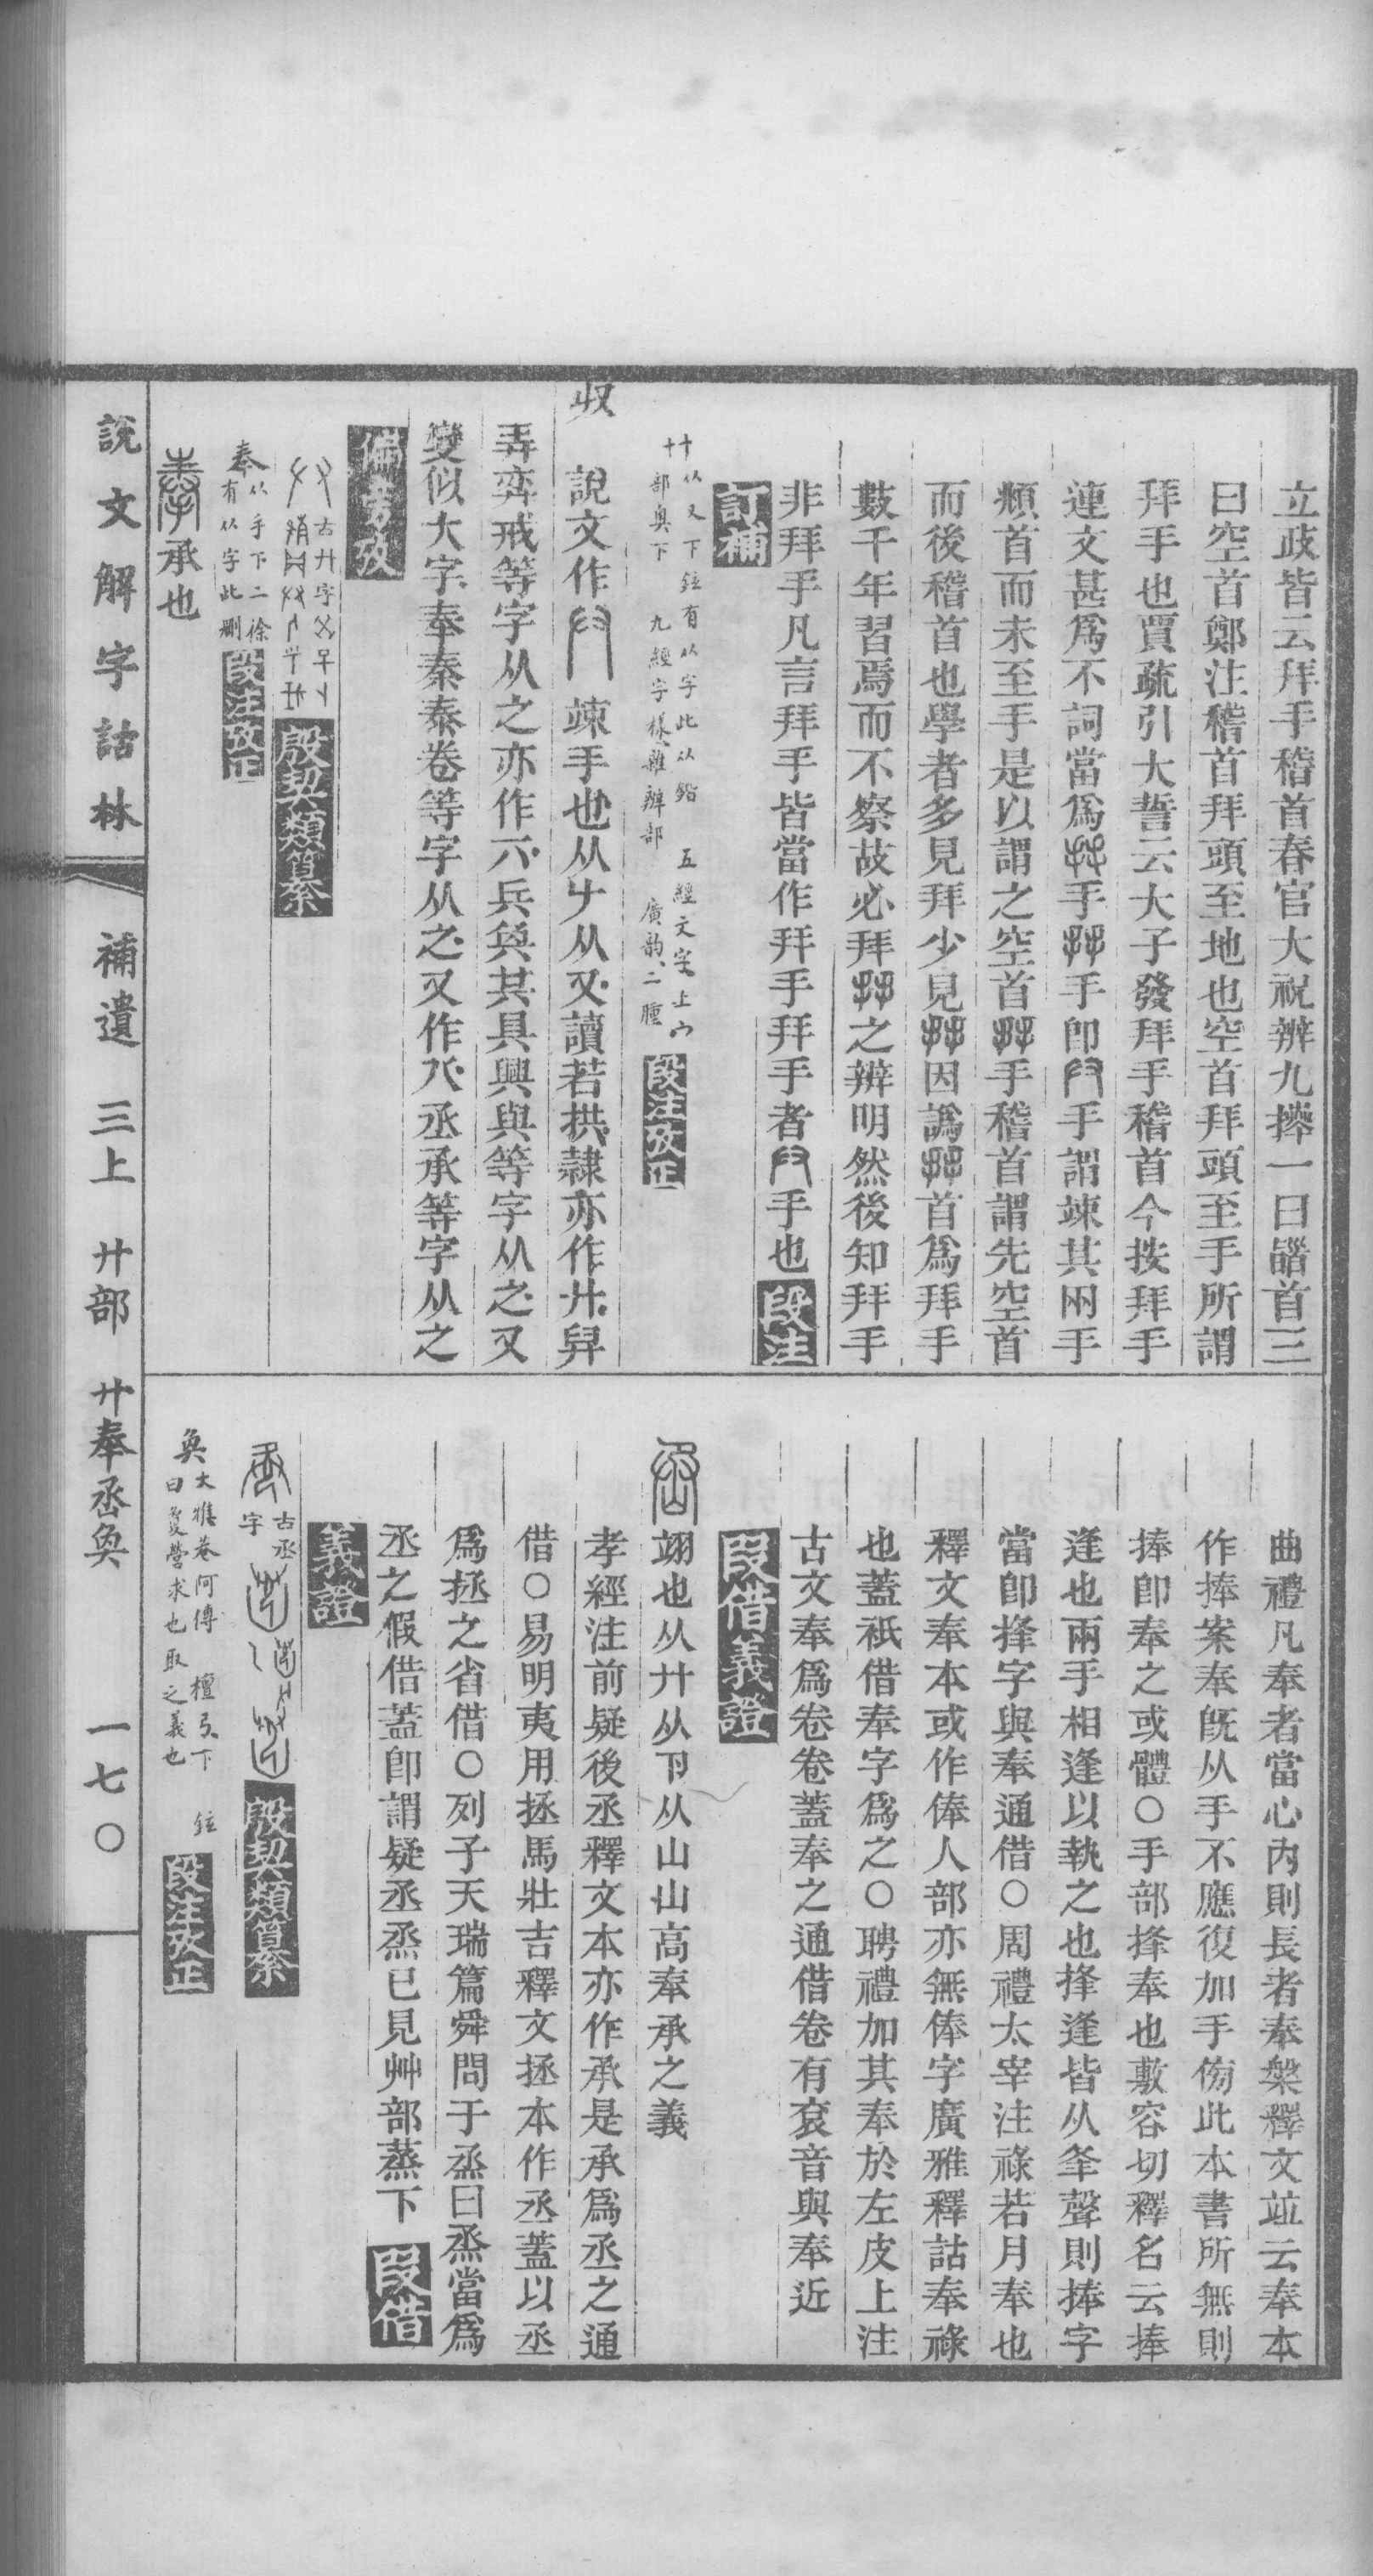 立政皆云拜手稽首春官大祝辨九𢷎一曰𩒨首三
曰空首鄭注稽首拜頭至地也空首拜頭至手所謂
拜手也賈疏引大誓云大子發拜手稽首今按拜手
連文甚爲不詞當爲𢫶手𢫶手卽𠬞手謂竦其兩手
頫首而未至手是以謂之空首𢫶手稽首謂先空首
而後稽首也學者多見拜少見𢫶因譌𢫶首爲拜手
數千年習焉而不察故必拜𢫶之辨明然後知拜手
非拜手凡言拜手皆當作拜手拜手者𠬞手也段注
訂補
廾从又下鉉有从字此从鍇 五經文字上
部奐下 九經字樣雜辨部 廣韵二腫 段注攷正
収 說文作𠬞竦手也从𠂇从又讀若拱隷亦作廾舁
弄弈戒等字从之亦作六兵奐其具興與等字从之又
變似大字奉秦泰卷等字从之又作八丞承等字从之
偏旁攷
古廾字 殷契類纂
奉从手下二徐有从字此刪 段注攷正
承也
曲禮凡奉者當心內則長者奉槃釋文竝云奉本
作捧案奉旣从手不應復加手㑂此本書所無則
捧卽奉之或體○手部㨩奉也敷容切釋名云捧
逢也兩手相逢以執之也㨩逢皆从夆聲則捧字
當卽㨩字與奉通借○周禮太宰注祿若月奉也
釋文奉本或作俸人部亦無俸字廣雅釋詁奉祿
也蓋祇借奉字爲之○聘禮加其奉於左皮上注
古文奉爲卷卷蓋奉之通借卷有袞音與奉近
段借義證
翊也从廾从卪从山山高奉承之義
孝經注前疑後丞釋文本亦作承是承爲丞之通
借○易明夷用拯馬壯吉釋文拯本作丞蓋以丞
爲拯之省借○列子天瑞篇舜問于烝曰烝當爲
丞之假借蓋卽謂疑丞烝已見艸部蒸下 叚借
義證
古丞字 殷契類纂
奐大雅卷阿傳 檀弓下 鉉
曰夐營求也取之義也 段注攷正
說文解字詁林 補遺 三上 廾部 廾奉丞奐 一七〇